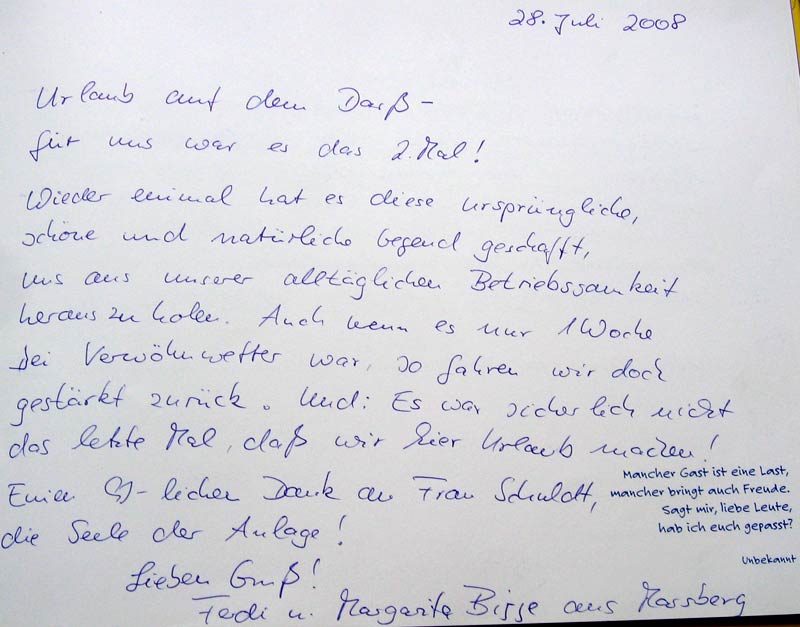 28. Juli 2008
Urlaub auf dem Darß –
für uns war es das 2. Mal!
Wieder einmal hat es diese ursprüngliche,
schöne und natürliche Gegend geschafft,
uns aus unserer alltäglichen Betriebssamkeit
herauszuholen. Auch wenn es nur 1 Woche
bei Verwöhnwetter war, so fahren wir doch
gestärkt zurück. Und: Es war sicherlich nicht
das letzte Mal, daß wir hier Urlaub machen!
Einen -lichen Dank an Frau Schuldt,
die Seele der Anlage!
Lieben Gruß!
Ferdi u. Margarita Bisse aus Marsberg
Mancher Gast ist eine Last,
mancher bringt auch Freude.
Sagt mir, liebe Leute,
hab ich euch gepasst?
Unbekannt